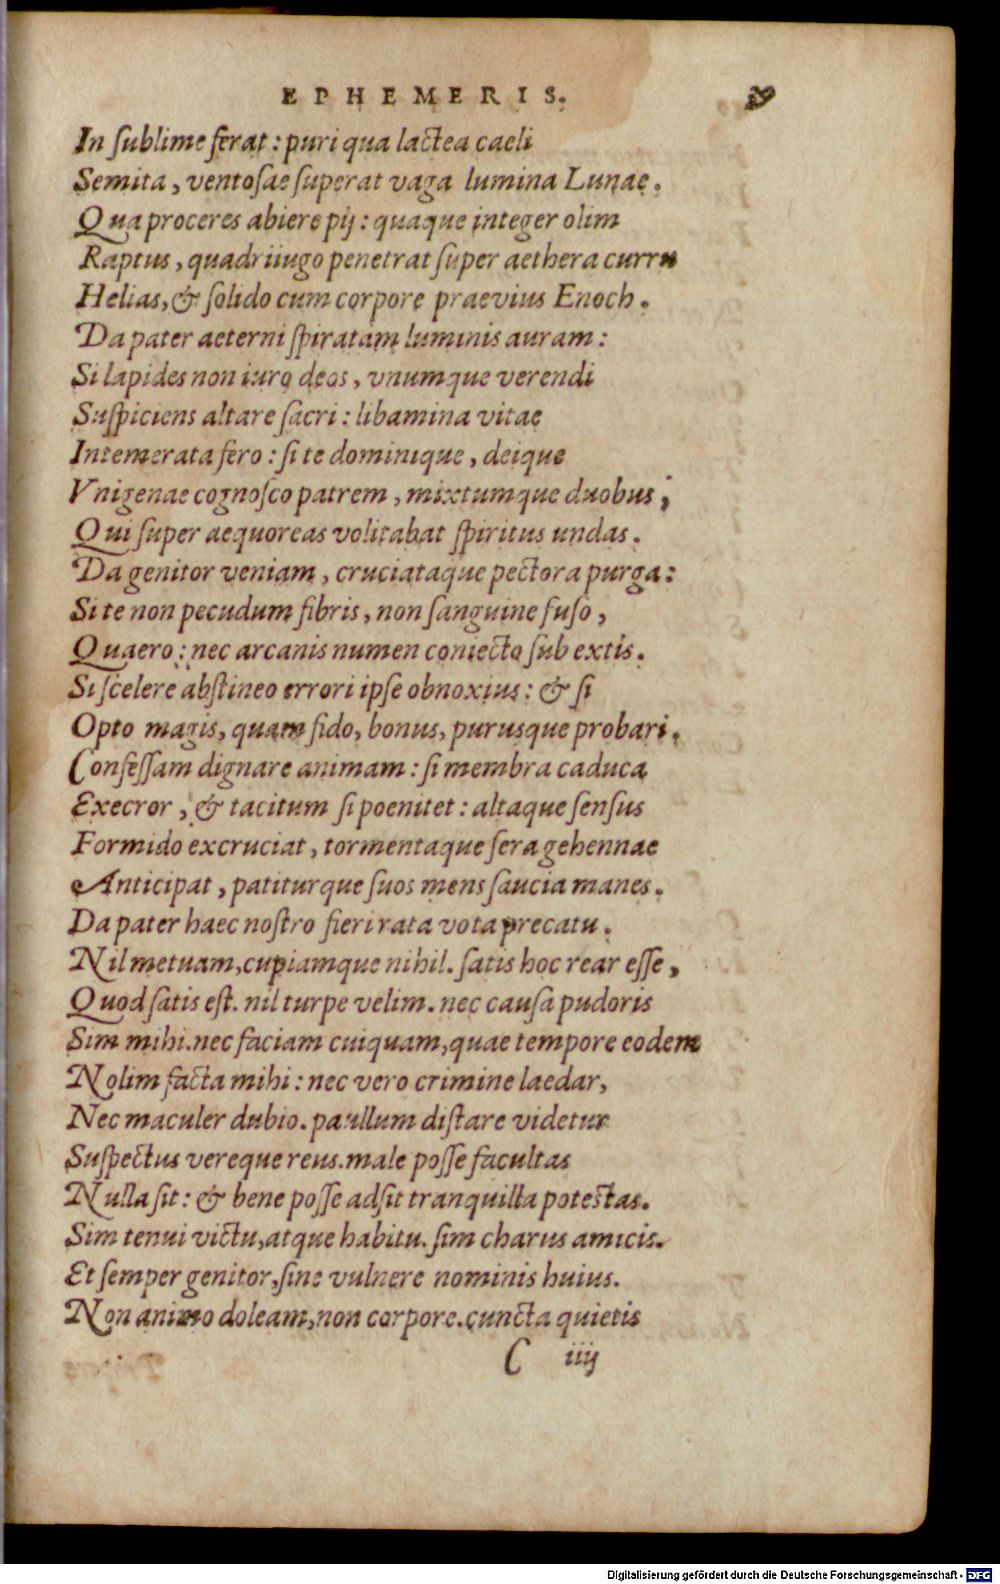 EPHEMERIS.
In sublime ferat: puri qua lactea caeli
Semita, ventosae superat vaga lumina Lunae.
Qua proceres abiere pij: quaque integer olim
Raptus, quadriiugo penetrat super aethera curru
Helias, & solido cum corpore praevius Enoch.
Da pater aeterni spiratam luminis auram:
Si lapides non iuro deos, vnumque verendi
Suspiciens altare sacri: libamina vitae
Intemerata fero: si te dominique, deique
Vnigenae cognosco patrem, mixtumque duobus;
Qui super aequoreas volitabat spiritus undas.
Da genitor veniam, cruciataque pectora purga:
Si te non pecudum fibris, non sanguine fuso,
Quaero: nec arcanis numen coniecto sub extis.
Si scelere abstineo errori ipse obnoxius: & si
Opto magis, quam fido, bonus, purusque probari.
Confessam dignare animam: si membra caduca
Execror, & tacitum si poenitet: altaque sensus
Formido excruciat, tormentaque sera gehennae
Anticipat, patiturque suos mens saucia manes.
Da pater haec nostro fieri rata vota precatu.
Nil metuam, cupiamque nihil. satis hoc rear esse,
Quod satis est. nil turpe velim. nec causa pudoris
Sim mihi. nec faciam cuiquam, quae tempore eodem
Nolim facta mihi: nec vero crimine laedar,
Nec maculer dubio. paullum distare videtur
Suspectus vereque reus. male posse facultas
Nulla sit: & bene posse adsit tranquilla potestas.
Sim tenui victu, atque habitu. sim charus amicis.
Et semper genitor, sine vulnere nominis huius.
Non animo doleam, non corpore. cuncta quietis
C iiij
Digitalisierung gefördert durch die Deutsche Forschungsgemeinschaft - DFG